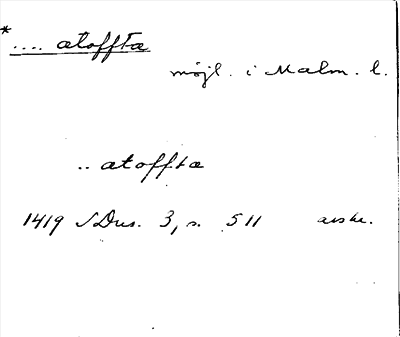 * .... atoffta
möjl. i Malm. l.
.. atoffta
1419 SDns. 3, s. 511 avskr.